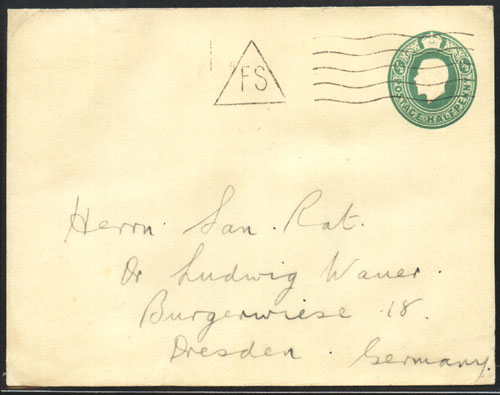 FS
POSTAGE HALFPENNY
Herrn. San. Rat.
Dr Ludwig Wauer.
Burgerwiese 18.
Dresden. Germany.